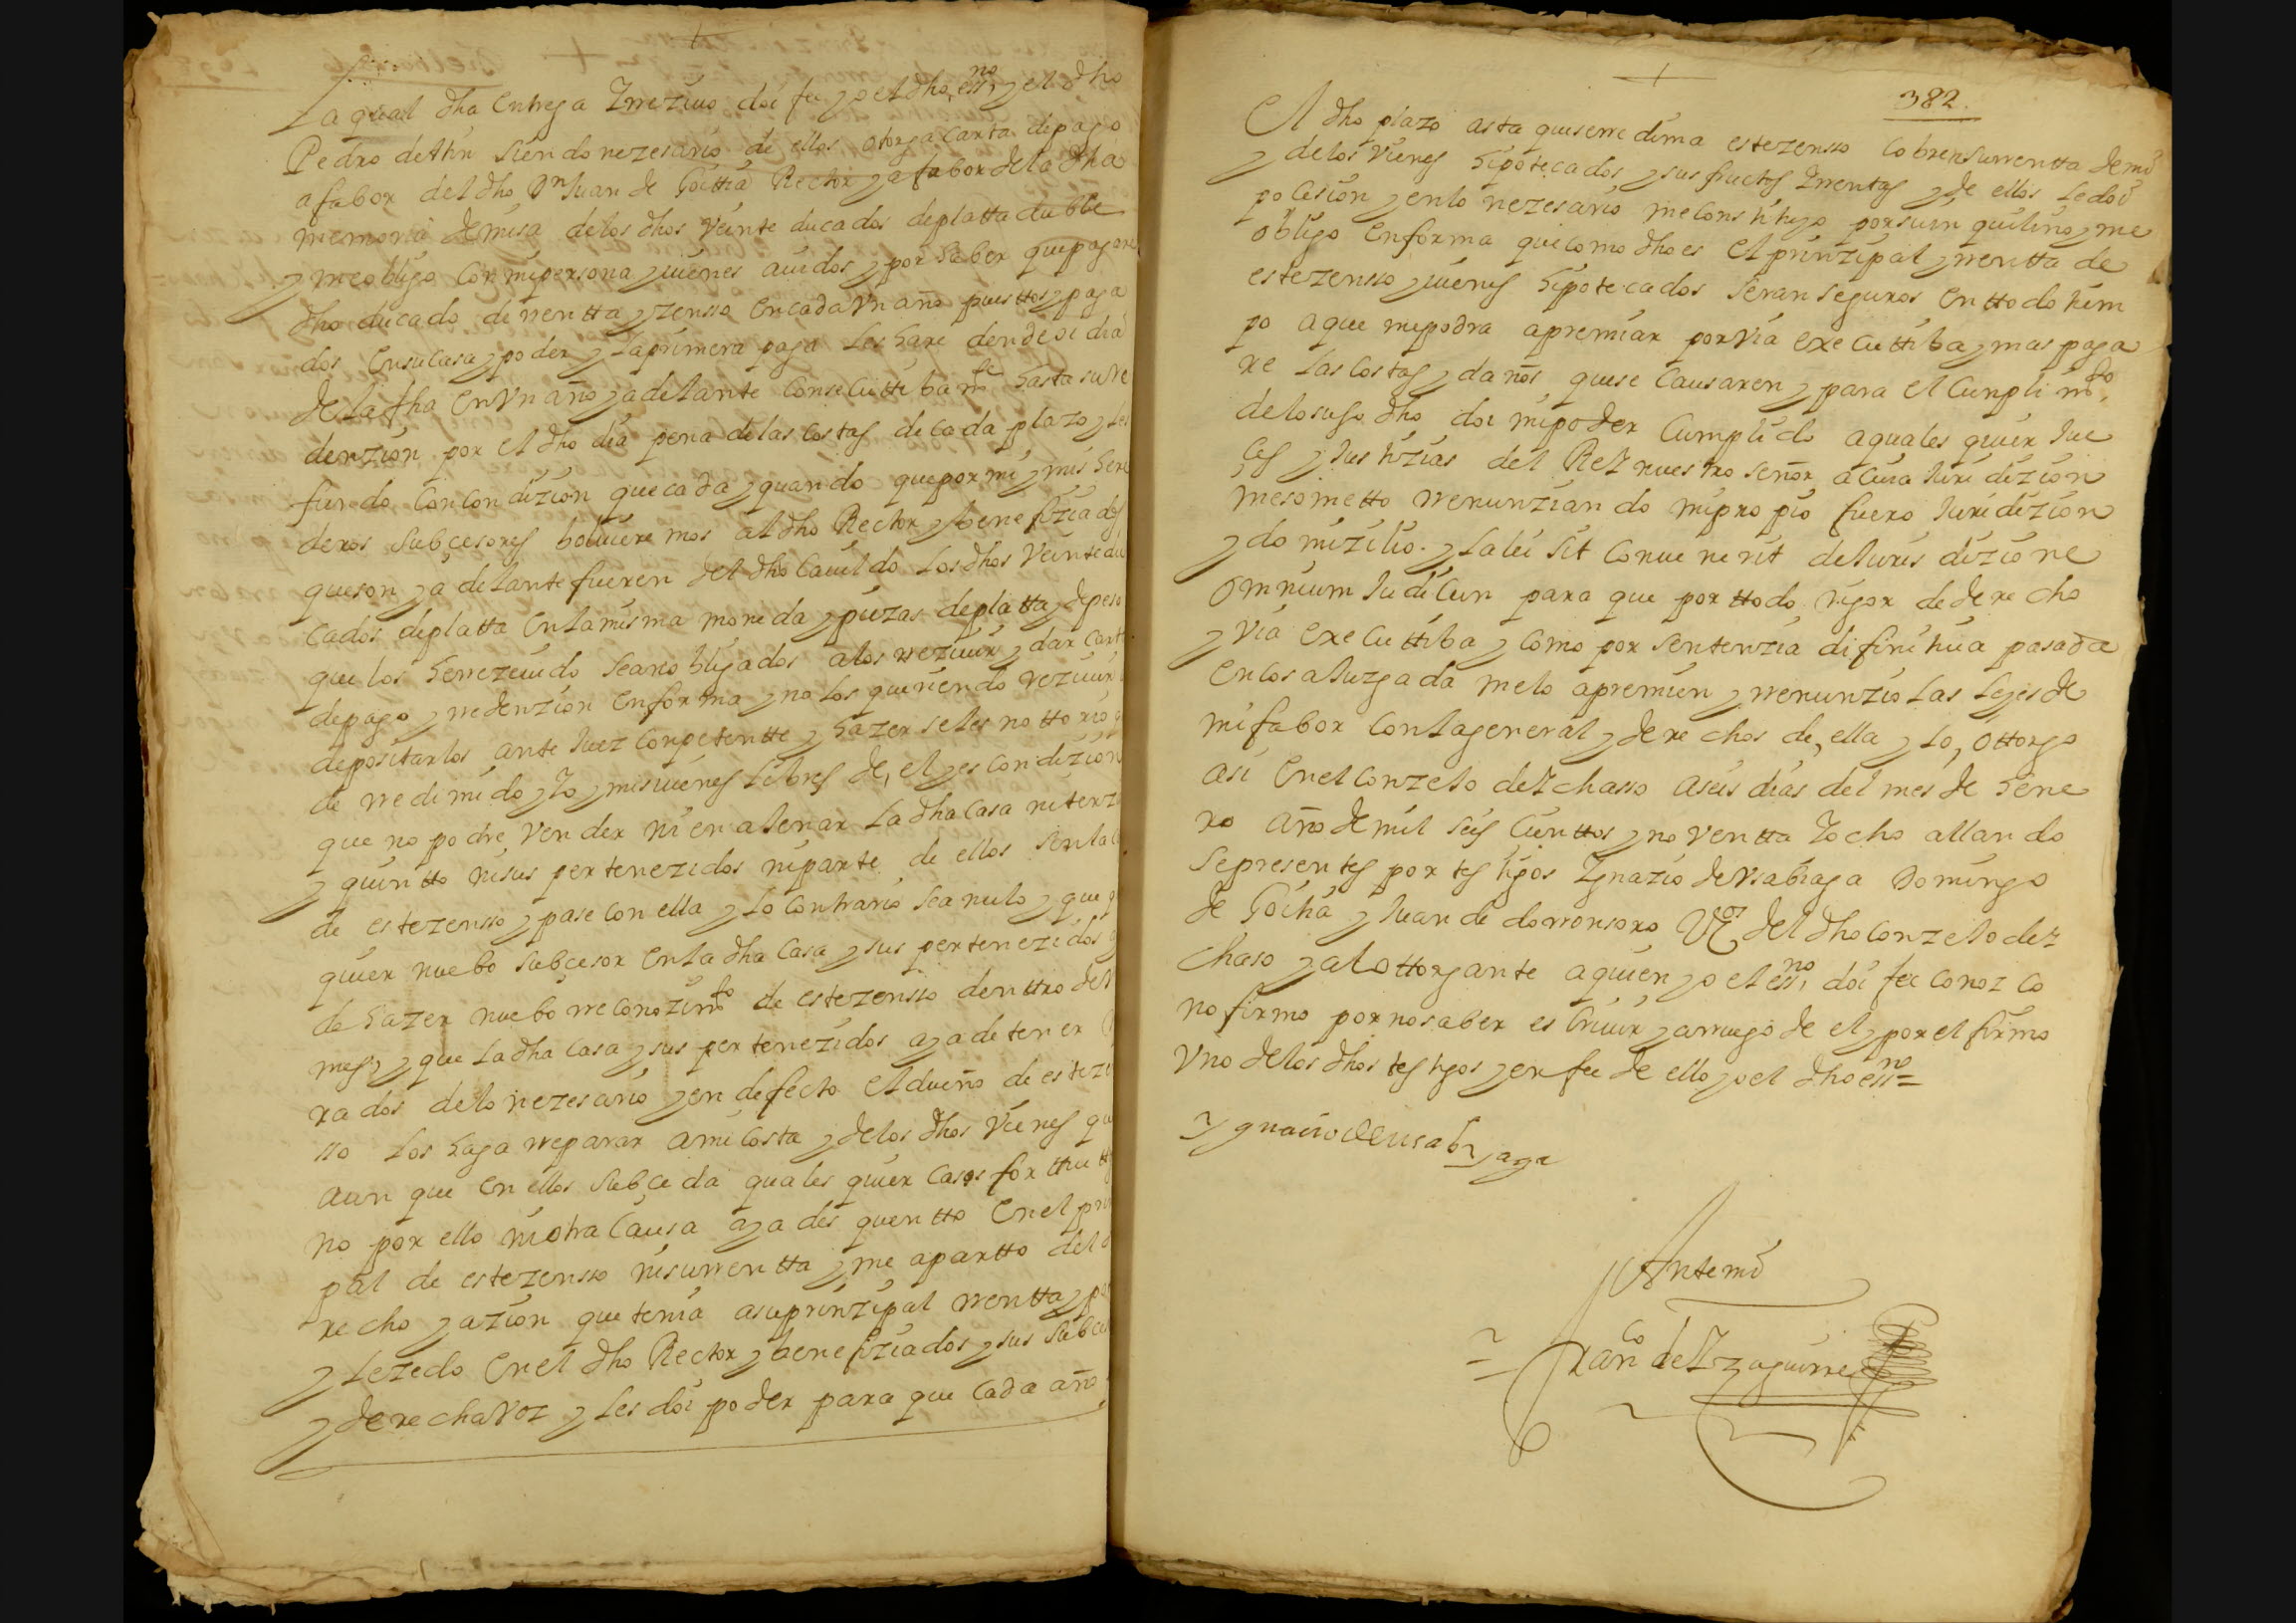 La qual dha entrega Yrrezivo doi fee yo el dho essno y el dho
Pedro de Ahin siendo nezesario de ellos otorga carta de pago
a fabor del dho Dn Juan de Goittia Rector y a fabor de la dha
memoria de misa de los dhos veinte ducados de platta du bble
y me obligo con mi persona y vienes avidos y por haber que pagare
dho ducado de rrentta y zensso en cada vn año puesttos y paga
dos en su casa y poder y la primera paga les hare dende oi dia
de la fha en vn año y adelante consecuttibamte hasta su re
denzion por el dho dia pena de las costas de cada plazo y les
fundo con condizion que cada y quando que por mi y mis here
deros subcesores bolviere mos al dho Rector y benefiziados
que son y adelante fueren del dho Cavildo los dhos veinte du
cados de platta en la misma moneda y piezas de platta y de peso
que los he rrezevido sean obligados a los rrezivir y dar cart
de pago y rredenzion en forma y no los queriendo rezivir
depositarlos ante Juez conpetentte y hazer seles nottorio
de rredimido y Yo y mis vienes libres de el y es condizion
que no podre vender ni enalenar la dha casa ni terzi
y quintto ni sus pertenezidos ni parte de ellos sin la c
de este zensso y pase con ella y lo contrario sea nulo y que q
quier nuebo subcesor en la dha casa y sus pertenezidos
de hazer nuebo rreconozimto de este zensso denttro del
mes y que la dha casa y sus pertenezidos aya de tener
rados de lo nezesario y en defecto el dueño de este zen
sso los haga rreparar a mi costa y de los dhos vienes que
aun que en ellos subceda quales quier casos forttuitt
no por ello ni otra causa aya des quentto en el prin
pal de este zensso ni su rrentta y me apartto del d
recho y azion que tenia a su prinzipal rrentta y p
y le zedo en el dho Rector y benefiziados y sus subces
y derecha voz y les doi poder para que cada año
382.
El dho plazo asta que se rre dima este zensso cobren su rrentta de mi
y de los vienes hipotecados y sus fructos Yrrentas y de ellos le doi
po cesion y en lo nezesario me constituyo por su in quilino y me
obligo en forma que como dho es el prinzipal y rrentta de
este zensso y vienes hipotecados seran seguros en ttodo tiem
po a que me podra apremiar por via executtiba y mas paga
re las costas y daños que se causaren y para el cunplimto
de lo suso dho doi mi poder cumplido a quales quier Jue
ces y Justizias del Rei nuestro señor a cuia Juridizion
me sometto rrenunzian do mi propio fuero Juridizion
y domizilio. y la lei sit convenerit de Juris dizione
omnium Judicun para que por ttodo rigor de derecho
y via executtiba y como por sentenzia difinitiva pasada
en cosa Juzgada me lo apremien y rrenunzio las leyes de
mi fabor con la general y derechos de ella y lo ottorgo
asi en el conzelo de Ychasso a seis dias del mes de hene
ro año de mil seis cienttos y noventta Yocho allando
se presentes por testigos Ygnazio de Vsabiaga Domingo
de Goitia y Juan de dorronsoro Vezos del dho conzelo de Y
chaso y al ottorgante a quien yo el essno doi fee conozco
no firmo por no saber escrivir y a rruego de el y por el firmo
vno de los dhos testigos y en fee de ello yo el dho essno=
Ygnacio de usabiaga
Ante mi
= Franco de Yzaguirre